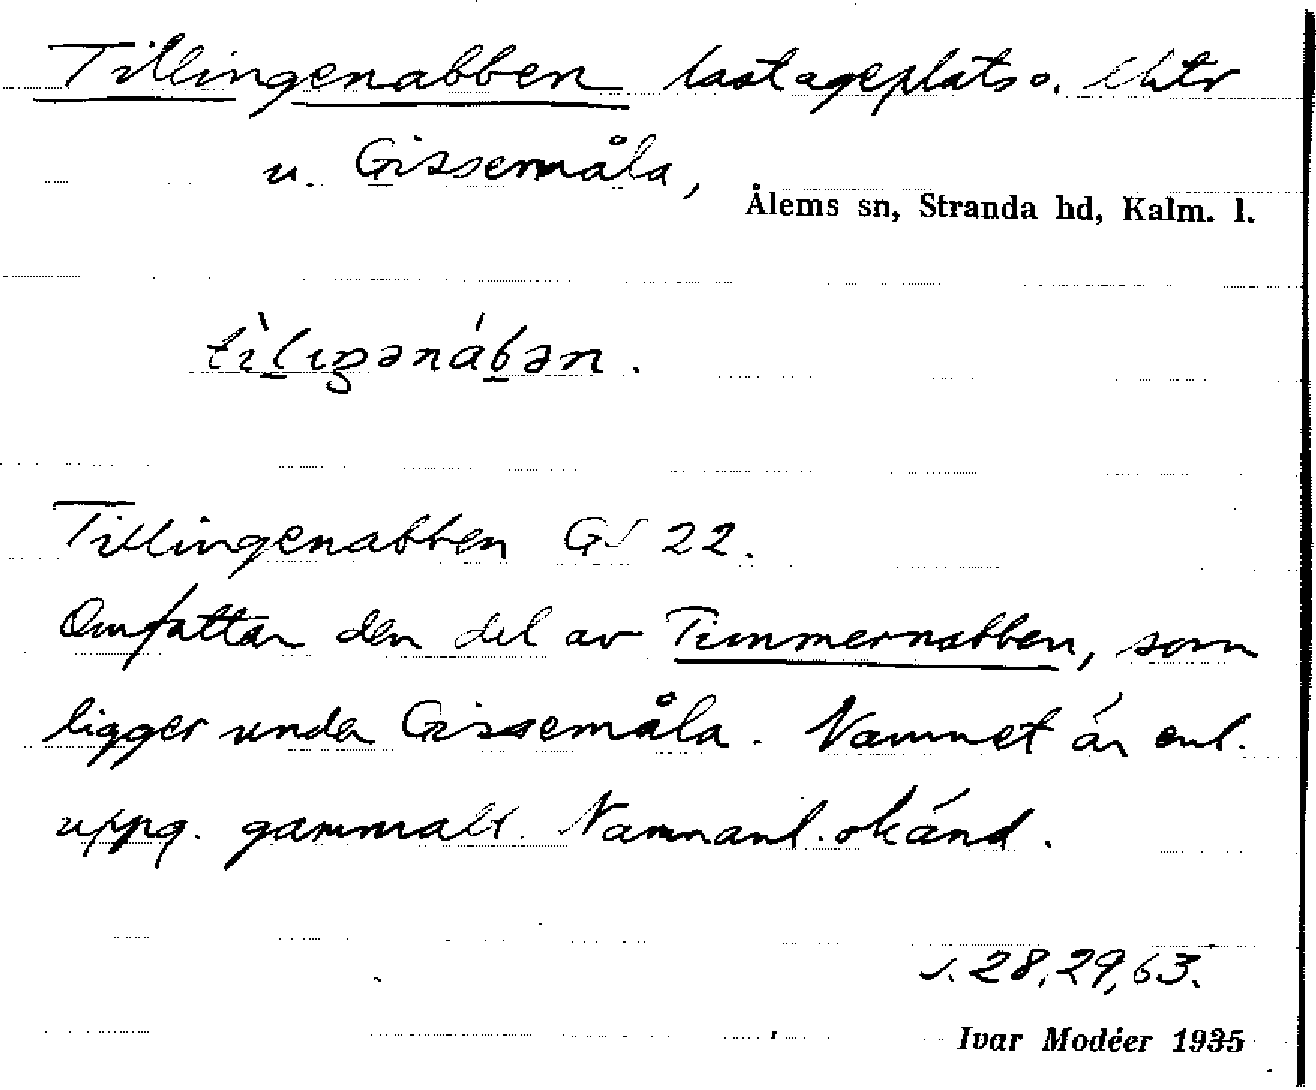 Tillingenabben lastageplats o. lhtr
u. Gissemåla,
Ålems sn, Stranda hd, Kalm. l.
tìlıŋənábən.
Tillingenabben GS 22.
Omfattar den del av Timmernabben, som
ligger under Gissemåla. Namnet är enl.
uppg. gammalt. Namnanl. okänd.
s. 28, 29, 63.
Ivar Modéer 1935